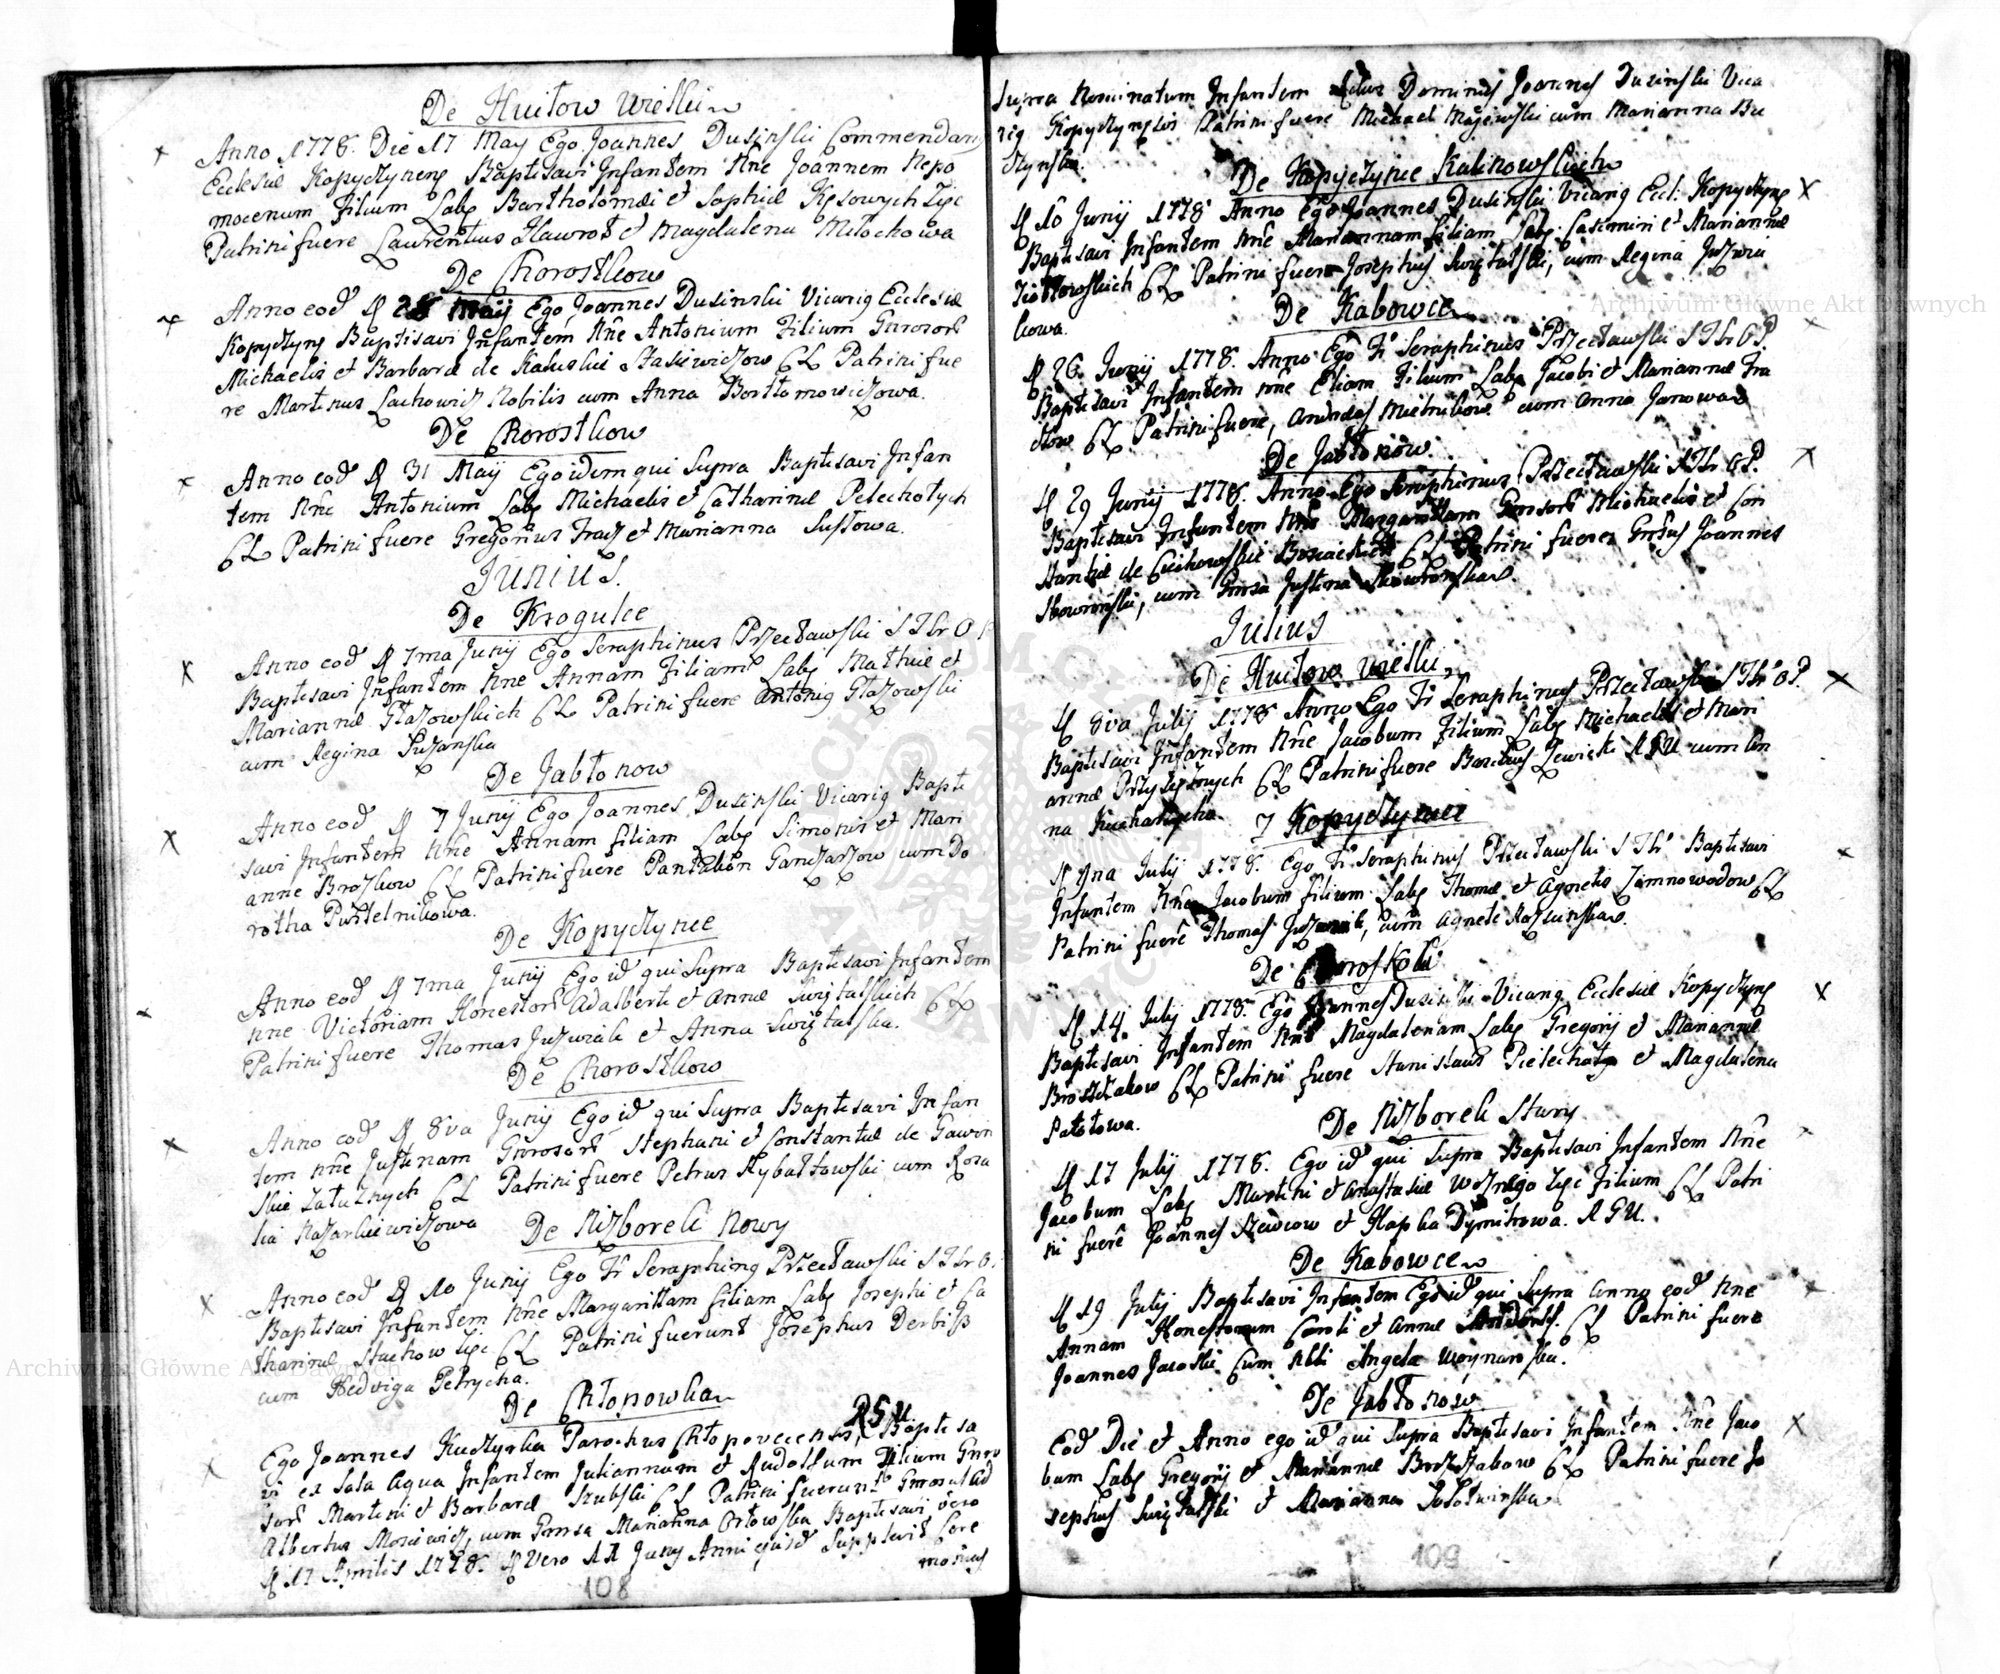 De Huitow Wielki
Anno 1778. Die 17 May Ego Joannes Dusinski Commendarg
Ecclesiæ Kopyctyneng Baptisavi Infantem Nne Joannem Nepo
mocenum Filium Labg Bartholomæi et Sophiæ Kssowych
Patrini fuere Laurentius Hawrot et Magdalena Mitochowa
De Chorostkow
Anno eod d May Ego Joannes Dusinski Vicarig Ecclesiæ
Kopyctyng Baptisavi Infantem Nne Antonium Filium Gnrosor
Michaelis et Barbaræ de Kaluskie CL Patrini fue
re Martinus Lachowicz Nobilis cum Anna Bortlomowiczowa.
De Chorostkow
Anno eod d 31 May Ego idem qui Supra Baptisavi Infan
tem Nne Antonium Labg Michaelis et Catharinæ Pelechotych
CL Patrini fuere Gregorius Tracz et Marianna Sustowa.
Junius.
De Krogulce
Anno eod d 7ma Junij Ego Seraphinus Przecławski S Th O
Baptisavi Infantem Nne Annam Filiam Labg Mathiæ et
Mariannæ Głazowskich CL Patrini fuere Antonig Głazowski
cum Regina Suzanska
De Jabłonow
Anno eod d 7 Junij Ego Joannes Dusinski Vicarig Bapti
savi Infantem Nne Annam filiam Labg Simonis et Mari
anne Brozkow CL Patrini fuere Pantalion Ganczarzow cum Do
rotha Pustelnikowa.
De Kopyctynce
Anno eod d 7ma Junij Ego id qui Supra Baptisavi Infantem
Nne Victoriam Honestor Adalberti et Annæ Swiętalskich CL
Patrini fuere Thomas Juzwiak et Anna Swiętalska.
De Chorostkow
Anno eod d 8va Junij Ego id qui Supra Baptisavi Infan
tem Nne Justinam Gnrosor Stephani et Constantiæ de Gawin
skie Załuznych CL Patrini fuere Petrus Rybałtowski cum Rosa
lia Nazarkiewiczowa
De Nizborek Nowy
Anno eod d 10 Junij Ego Fr Seraphing Przecławski S Th O
Baptisavi Infantem Nne Margarittam filiam Labg Josephi et Ca
tharinæ Stachow CL Patrini fuerunt Josephus Derbisz
cum Hedviga Petrycha.
De Chłopowka
RGU
Ego Joannes Kuczynka Parochus Chłopovecensis, Baptisa
vi ex sola aqua Infantem Juliannam et Rudolfum Filium Gnro
sor Martini et Barbaræ Szubski CL Patrini fuerunt Gnrosus Ad
albertus Mosiewicz cum Gnrosa Marianna Orłowska Baptisavi vero
d 17 Aprilis 1778. d vero 11 Junij Anni ejusd Supplevit Cere
monias
108
Supra Nominatum Infantem Dominus Joannes Dusinski Vica
rig Kopyctynensis Patrini fuere Michael Majewski cum Marianna Bu
czynska.
De Kopyctynce Kalinowskich
d 10 Junij 1778 Anno Ego Joannes Dusinski Vicarig Eccl. Kopyctyng
Baptisavi Infantem Nne Mariannam filiam Labg. Casimiri et Mariannæ
CL Patrini fuere Josephus Swiętalski, cum Regina Juzwia
kowa.
De Kabowce
d 26. Junij 1778. Anno Ego Fr Seraphinus Przecławski S Th O P.
Baptisavi Infantem Nne Eliam Filium Labg Jacobi et Mariannæ Fra
CL Patrini fuere, Andreas Mietnikow cum Anna Janowa
De Jabłonow.
d 29 Junij 1778. Anno Ego Seraphinus Przecławski S Th O P.
Baptisavi Infantem Nne Margarittam Gnrosor Michaelis et Con
stantiæ de Cichowskie CL Patrini fuere Gnrsus Joannes
Skowronski, cum Gnrsa Justina Skowronska.
Julius
De Huitow Wielki
d 8va Julij 1778 Anno Ego Fr Seraphinus Przecławski S Th O P.
Baptisavi Infantem Nne Jacobum Filium Labg Michaelis et Mari
annæ Przysiężnych CL Patrini fuere Basilius Lewicki RGU cum An
na Kucharycha
7 Kopyctynce
d 9na Julij 1778. Ego Fr Seraphinus Przecławski S Th Baptisavi
Infantem Nne Jacobum filium Labg Thomæ et Agnetis Zimnowodow CL
Patrini fuere Thomas Juzwiak, cum Agnete
De Choroskow
d 14 Julij 1778. Ego Joannes Dusinski Vicarig Ecclesiæ Kopyctyng
Baptisavi Infantem Nne Magdalenam Labg Gregorij et Mariannæ
CL Patrini fuere Stanislaus et Magdalena
Patotowa.
De Nizborek Stary
d 17 Julij 1778. Ego id qui Supra Baptisavi Infantem Nne
Jacobum Labg Martini et Anastasiæ Woznego Filium CL Patri
ni fuere Joannes Szewcow et Hapka Dymitrowa. RGU.
De Kabowce
d 19 Julij Baptisavi Infantem Ego id qui Supra Anno eod Nne
Annam Honestorum Caroli et Annæ CL Patrini fuere
Joannes Jacoski Cum Nbli Angela Woynarska.
De Jabłonow
Eod Die et Anno ego id qui Supra Baptisavi Infantem Nne Jaco
bum Labg Gregorij et Mariannæ CL Patrini fuere Jo
sephus Swiętalski et Marianna
109
Archiwum Główne Akt Dawnych
Archiwum Główne Akt Dawnych